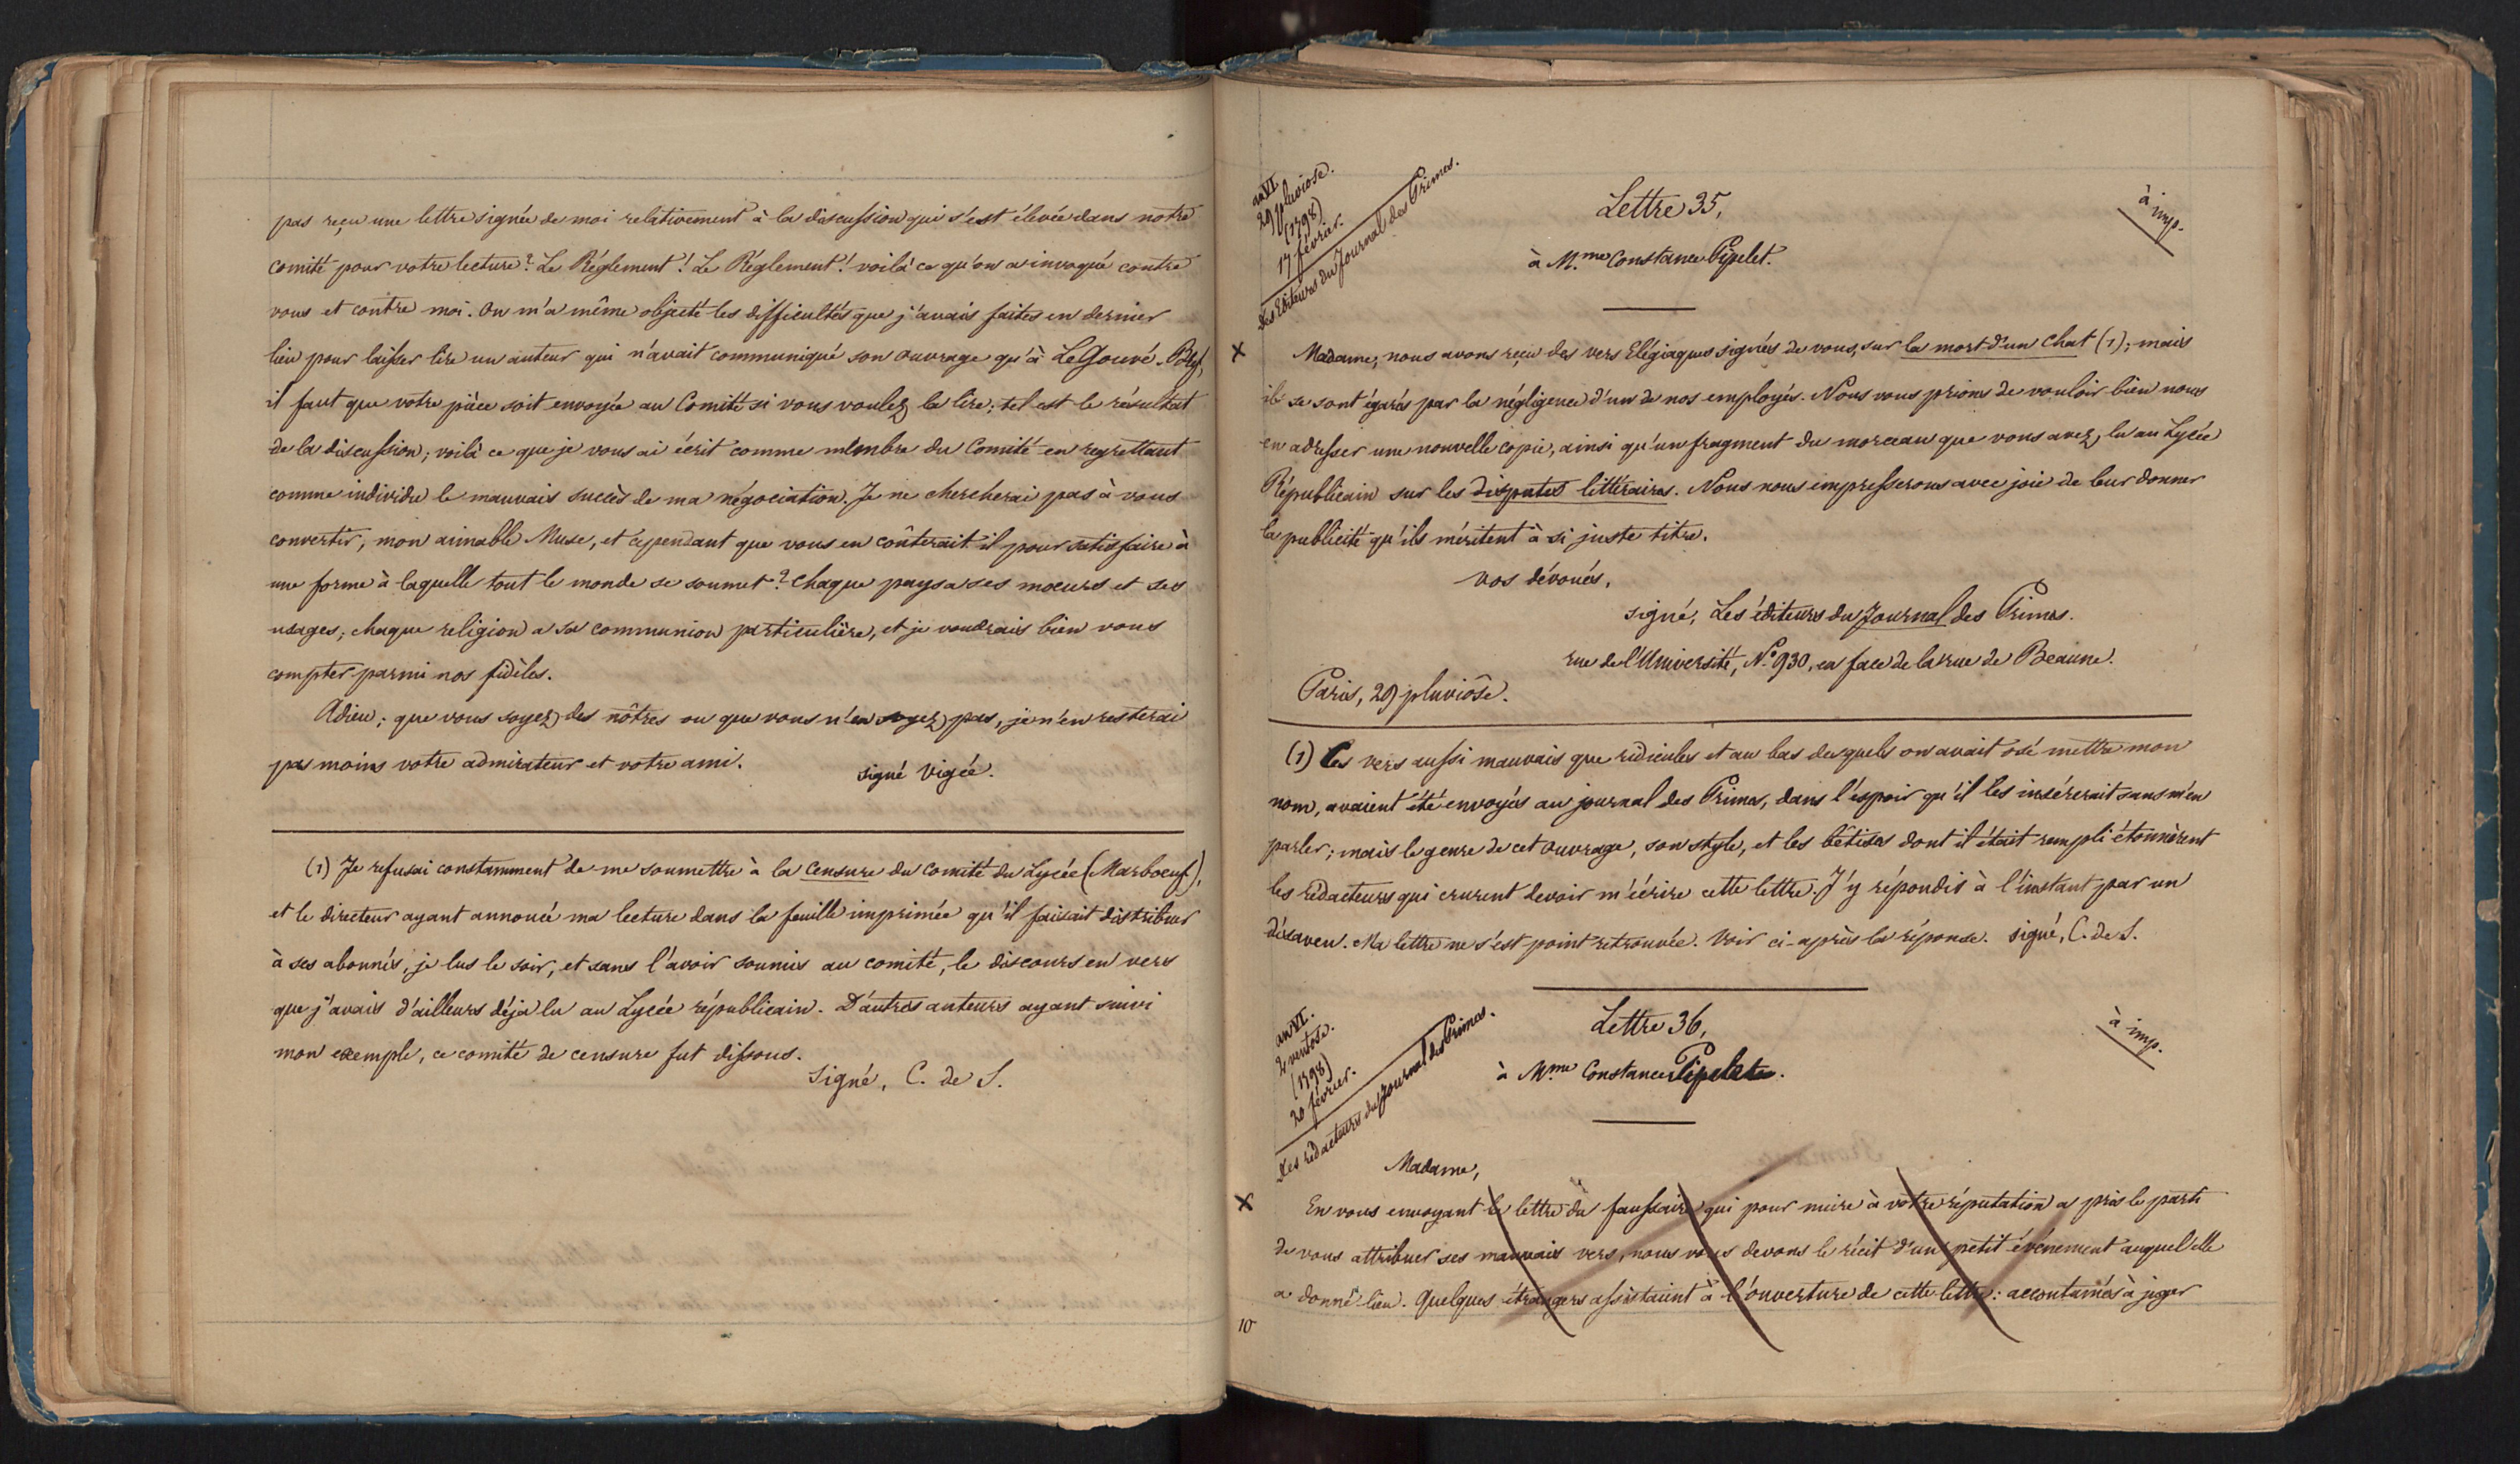 pas reçu une lettre signée de moi relativement à la discussion qui s'est élevée dans notre
comité pour votre lecture? Le Réglement! Le Réglement! voilà ce qu'on a invoqué contre
vous et contre moi. On m'a même objecté les difficultés que j'avais faites en dernier
lieu pour laisser lire un auteur qui n'avait communiqué son ouvrage qu'à LeGouvé. Bref,
il faut que votre pièce soit envoyée au Comité si vous voulez la lire; tel est le résultat
de la discussion; voilà ce que je vous ai écrit comme membre du Comité en regrettant
comme individu le mauvais succès de ma négociation. Je ne chercherai pas à vous
convertir, mon aimable Muse, et cependant que vous en coûterait-il pour satisfaire à
une forme à laquelle tout le monde se soumet? Chaque pays a ses moeurs et ses
usages; chaque religion a sa communion particulière, et je voudrais bien vous
compter parmi nos fidèles.
Adieu; que vous soyez des nôtres ou que vous n'en soyez pas, je n'en resterai
pas moins votre admirateur et votre ami.
signé Vigée.
(1) Je refusai constamment de me soumettre à la censure du comité du Lycée (Marboeuf),
et le directeur ayant annoncé ma lecture dans la feuille imprimée qu'il faisait distribuer
à ses abonnés, je lus le soir, et sans l'avoir soumis au comité, le discours en vers
que j'avais d'ailleurs déja lu au Lycée républicain. D'autres auteurs ayant suivi
mon exemple, ce comité de censure fut dissous.
Signé, C. de S.
an VI.
29 pluviose.
(1798)
17 février.
des Editeurs du Journal des Primes.
Lettre 35,
à imp.
à M.me Constance Pipelet.
x Madame, nous avons reçu des vers Elégiaques signés de vous, sur la mort d'un chat (1); mais
ils se sont égarés par la négligence d'un de nos employés. Nous vous prions de vouloir bien nous
en adresser une nouvelle copie, ainsi qu'un fragment du morceau que vous avez lu au Lycée
Républicain sur les disputes littéraires. Nous nous empresserons avec joie de leur donner
la publicité qu'ils méritent à si juste titre.
vos dévoués,
signé, Les éditeurs du Journal des Primes.
rue de l'Université, N.º 930, en face de la rue de Beaune.
Paris, 29 pluviôse.
(1) Ces vers aussi mauvais que ridicules et au bas desquels on avait osé mettre mon
nom, avaient été envoyés au journal des Primes, dans l'éspoir qu'il les insérerait sans m'en
parler; mais le genre de cet ouvrage, son style, et les bêtises dont il était rempli étonnèrent
les rédacteurs qui crurent devoir m'écrire cette lettre. J'y répondis à l'instant par un
désaveu. Ma lettre ne s'est point retrouvée. Voir ci-après la réponse. signé, C. de S.
an VI.
2 ventose.
(1798)
20 février.
des rédacteurs du Journal des Primes.
Lettre 36,
à imp.
à M.me Constance Pipelet.
Madame,
x En vous envoyant la lettre du faussaire qui pour nuire à votre réputation a pris le parti
de vous attribuer ses mauvais vers, nous vous devons le récit d'un petit événement auquel elle
a donné lieu. Quelques étrangers assistaient à l'ouverture de cette lettre: accoutumés à juger
10